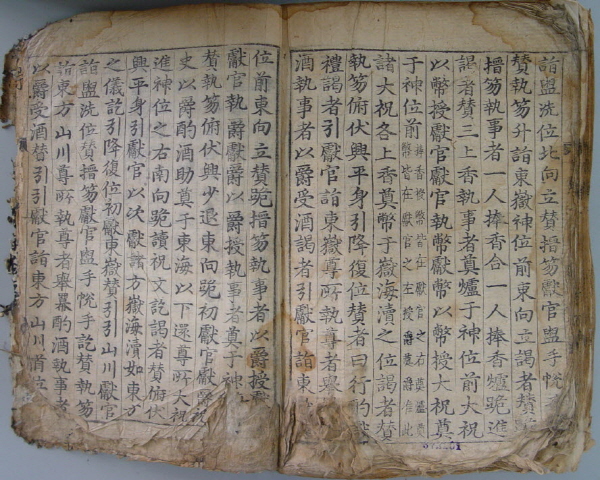 詣盥洗位北向立賛搢笏獻官盥手帨手
賛執笏升詣東嶽神位前東向立謁者賛跪
搢笏執事者一人捧香合一人捧香爐跪進
謁者賛三上香執事者奠爐于神位前大祝
以幣授獻官獻官執幣獻幣以幣授大祝奠
于神位前
諸大祝各上香奠幣于嶽海瀆之位謁者賛
執笏俯伏興平身引降復位賛者曰行初獻
禮謁者引獻官詣東嶽尊所執尊者舉冪酌
酒執事者以爵受酒謁者引獻官詣東
位前東向立賛跪搢笏執事者以爵授獻
獻官執爵獻爵以爵授執事者奠于神
賛執笏俯伏興少退東向跪初獻官獻爵
史以爵酌酒助奠于東海以下還尊所大祝
進神位之右南向跪讀祝文訖謁者賛俯伏
興平身引獻官以次獻諸方嶽海瀆如東方
之儀訖引降復位初獻東嶽賛引引山川獻官
詣盥洗位賛搢笏獻官盥手帨手訖賛執笏
詣東方山川尊所執尊者舉冪酌酒執事者
以爵受酒賛引引獻官詣東方山川前位